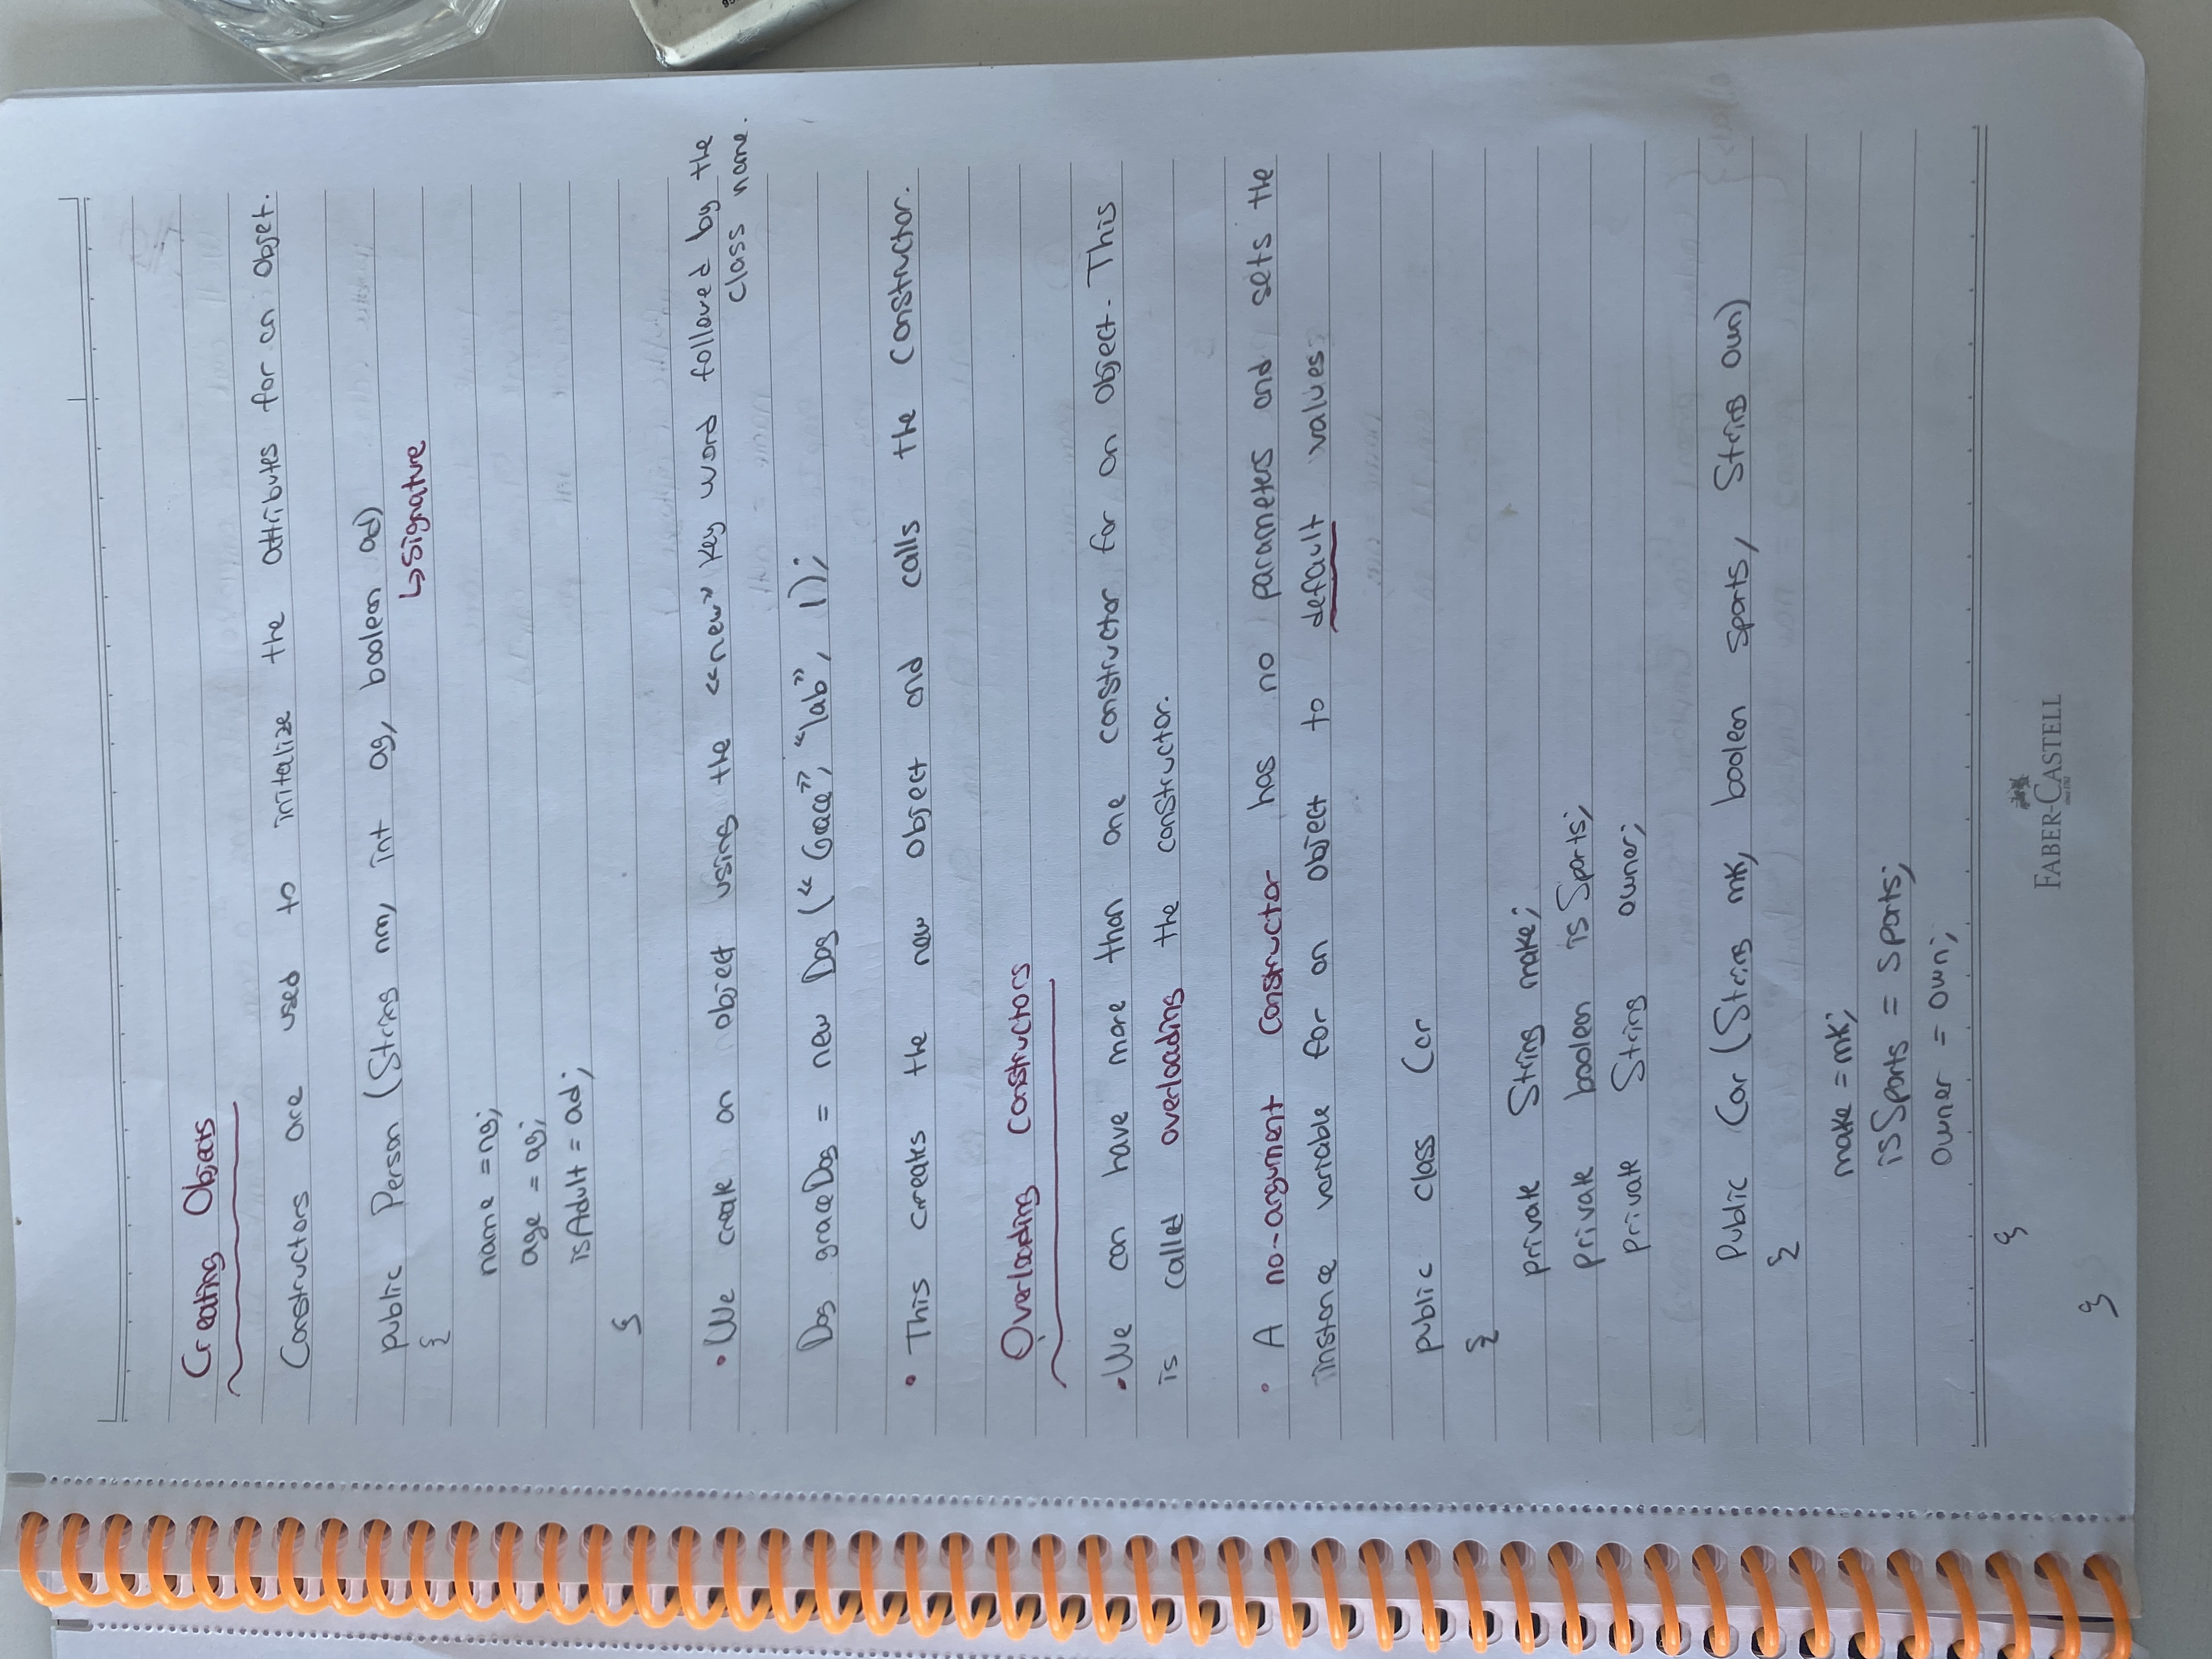 Creating Objects
Constructors are used to initalize the attributes for an Objet.
public Person (String nm, int ag, boolean ad)
↳ Signature
{
name = ng;
age = ag;
isAdult = ad;
}
• We create an object using the «new» key word followed by the
class name.
Dog graceDog = new Dog («Grace», «lab», 1);
• This creates the new object and calls the constructor.
Overloading constructors
• We can have more than one constructor for an object. This
is called overloading the constructor.
• A no-argument constructor has no parameters and sets the
instance variable for an object to default values.
public class Car
{
private String make;
private boolean isSports;
private String owner;
Public Car (String mk, boolean sports, String own)
{
make = mk;
isSports = sports;
owner = own;
}
FABER-CASTELL
since 1761
}